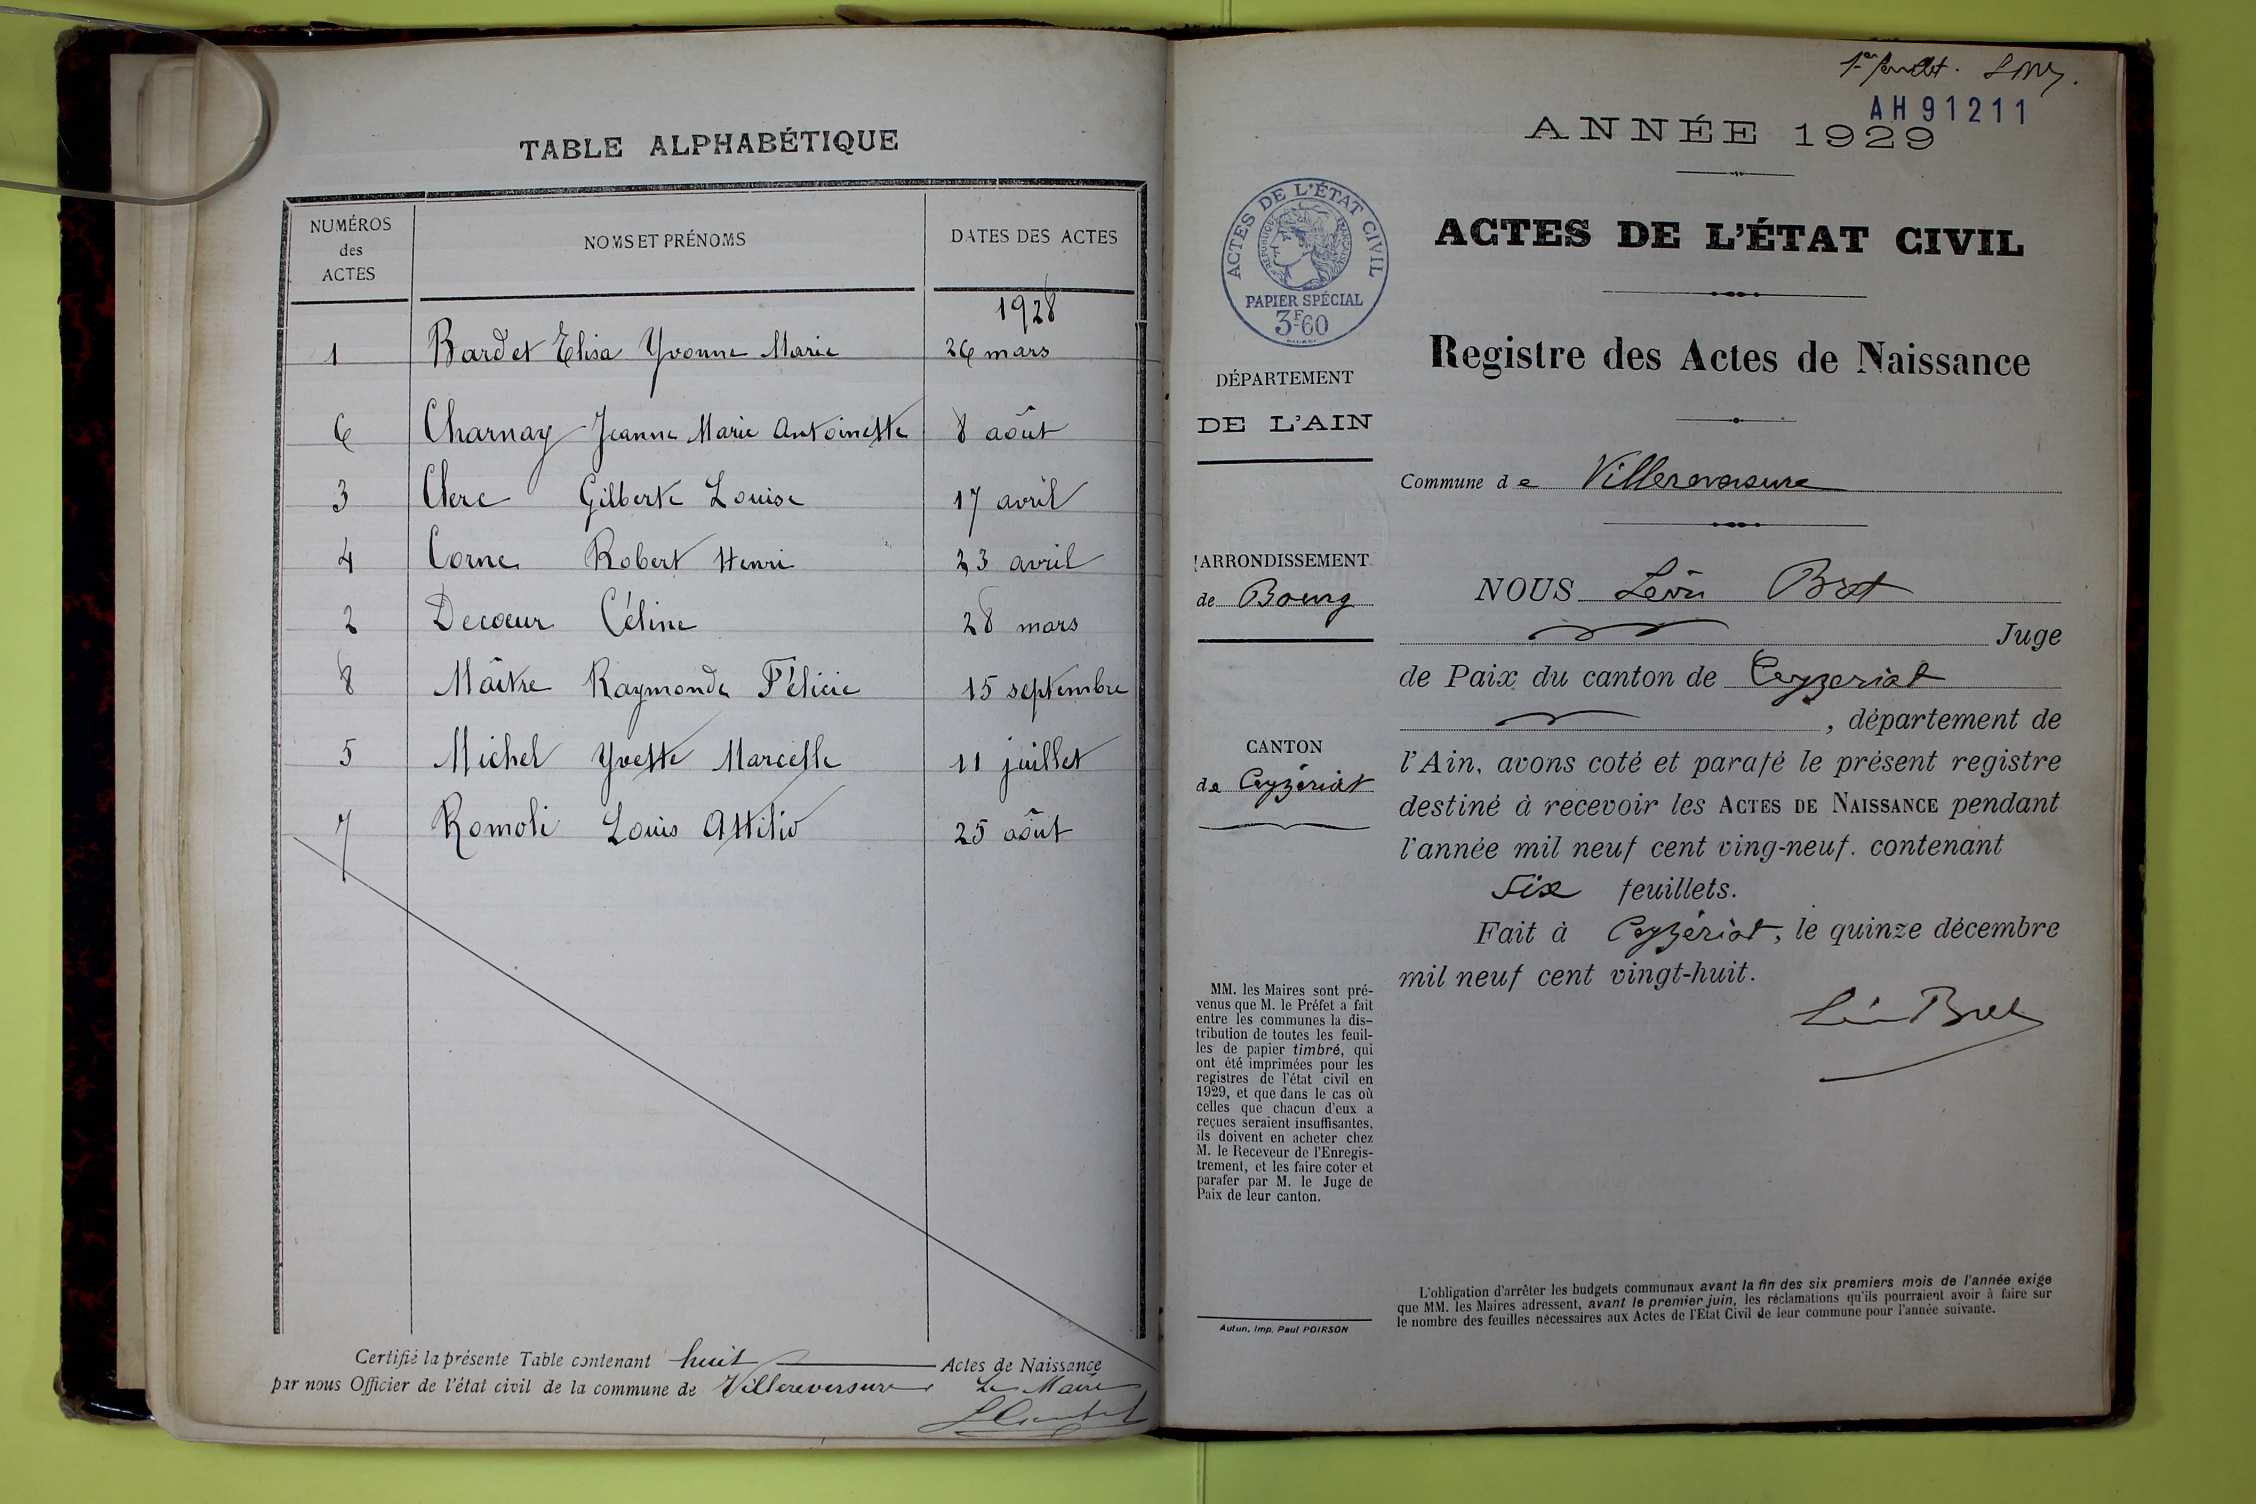 TABLE ALPHABÉTIQUE
NUMÉROS
des
ACTES
NOMS ET PRÉNOMS
DATES DES ACTES
1928
1 Bardet Elisa Yvonne Marie 26 mars
6 Charnay Jeanne Marie Antoinette 8 août
3 Clerc Gilberte Louise 17 avril
4 Corne Robert Henri 23 avril
2 Decœur Céline 28 mars
8 Maître Raymonde Félicie 15 septembre
5 Michel Yvette Marcelle 11 juillet
7 Romoli Louis Attilio 25 août
Certifié la présente Table contenant huit Actes de Naissance
par nous Officier de l'état civil de la commune de Villereversure Le Maire
1er feuillet.
AH 91211
ANNÉE 1929
ACTES DE L'ÉTAT CIVIL
RÉPUBLIQUE FRANÇAISE
PAPIER SPÉCIAL
3F60
ACTES DE L'ÉTAT CIVIL
Registre des Actes de Naissance
DÉPARTEMENT
DE L'AIN
Commune de Villereversure
ARRONDISSEMENT
de Bourg
CANTON
de Ceyzériat
NOUS Léon Bret
Juge
de Paix du canton de Ceyzeriat
, département de
l'Ain, avons coté et parafé le présent registre
destiné à recevoir les ACTES DE NAISSANCE pendant
l'année mil neuf cent ving-neuf. contenant
six feuillets.
Fait à Ceyzériat, le quinze décembre
mil neuf cent vingt-huit.
Léon Bret
MM. les Maires sont pré-
venus que M. le Préfet a fait
entre les communes la dis-
tribution de toutes les feuil-
les de papier timbré, qui
ont été imprimées pour les
registres de l'état civil en
1929, et que dans le cas où
celles que chacun d'eux a
reçues seraient insuffisantes,
ils doivent en acheter chez
M. le Receveur de l'Enregis-
trement, et les faire coter et
parafer par M. le Juge de
Paix de leur canton.
Autun, Imp. Paul POIRSON
L'obligation d'arrêter les budgets communaux avant la fin des six premiers mois de l'année exige
que MM. les Maires adressent, avant le premier juin, les réclamations qu'ils pourraient avoir à faire sur
le nombre des feuilles nécessaires aux Actes de l'Etat Civil de leur commune pour l'année suivante.